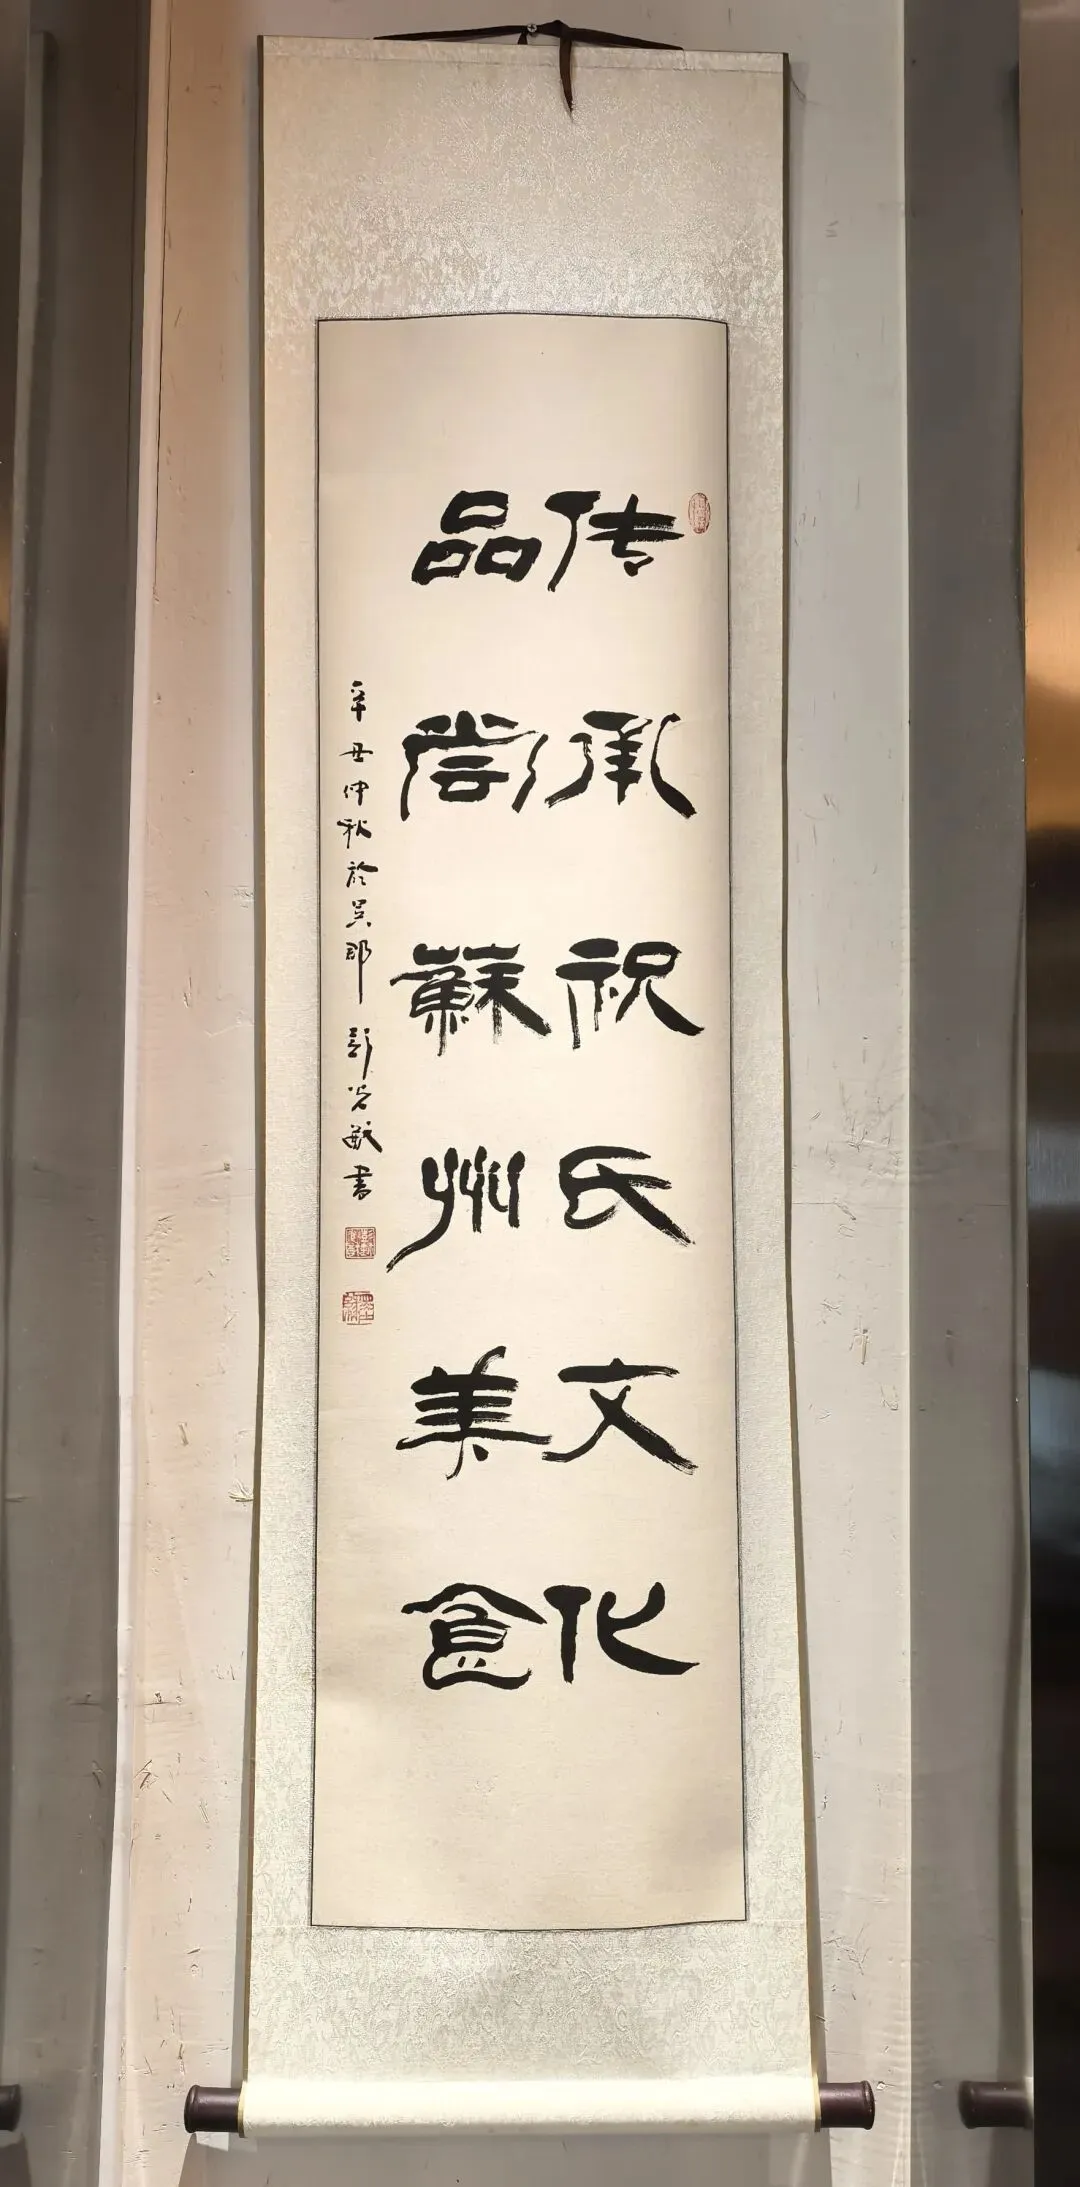 传承祝氏文化
品尝蘇州美食
辛丑仲秋於吴郡 彭敏書